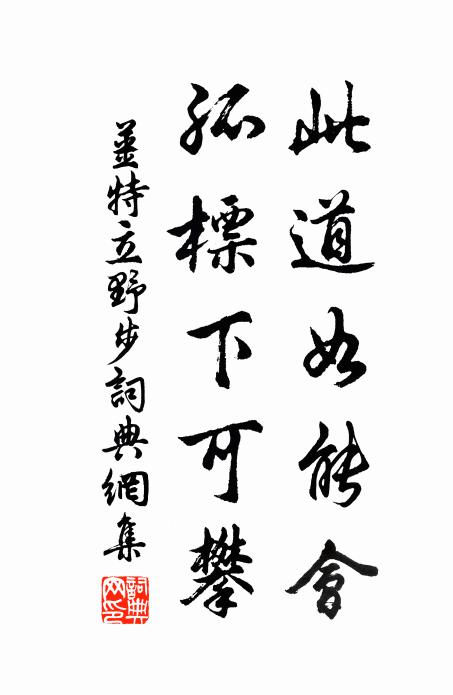 此道如能會
孤標下可攀
姜特立野步詞典網集
詞典網印